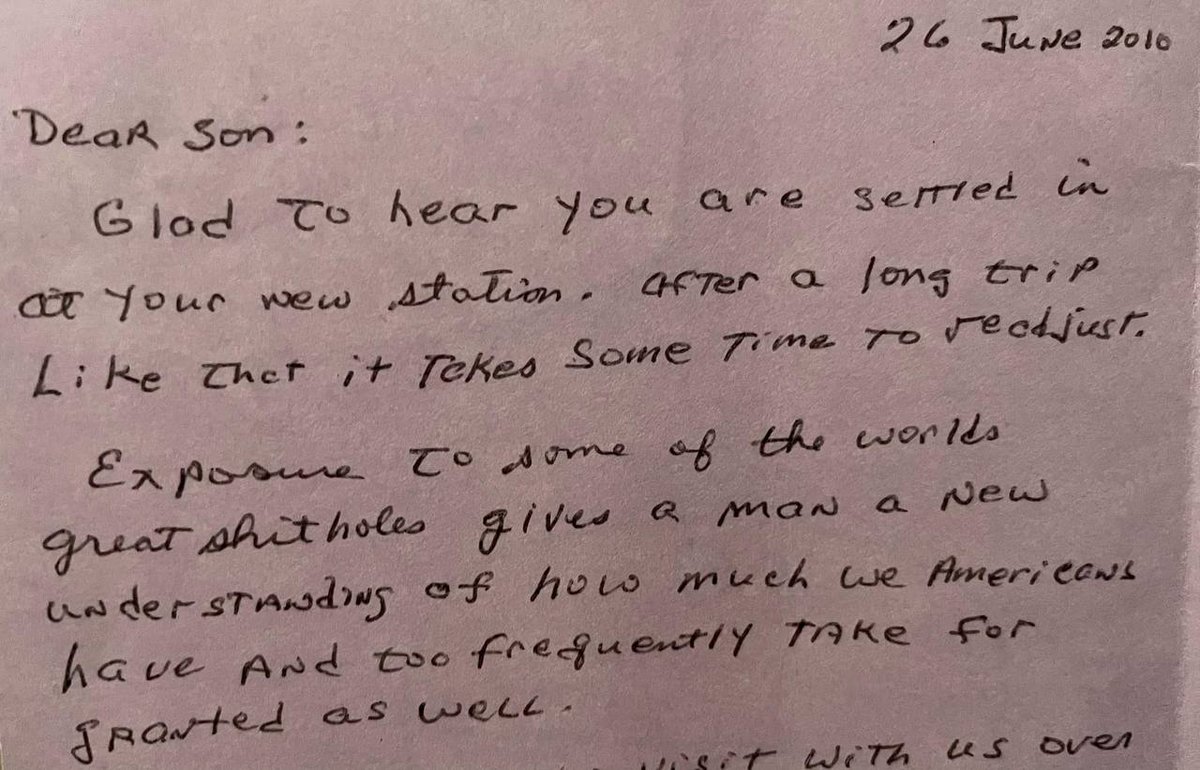 26 June 2010
Dear Son:
Glad to hear you are settled in
at your new station. After a long trip
Like that it Takes Some Time To readjust.
Exposure To some of the worlds
great shitholes gives a man a New
understanding of how much we Americans
have And too frequently TAKe for
granted as well.
visit with us over